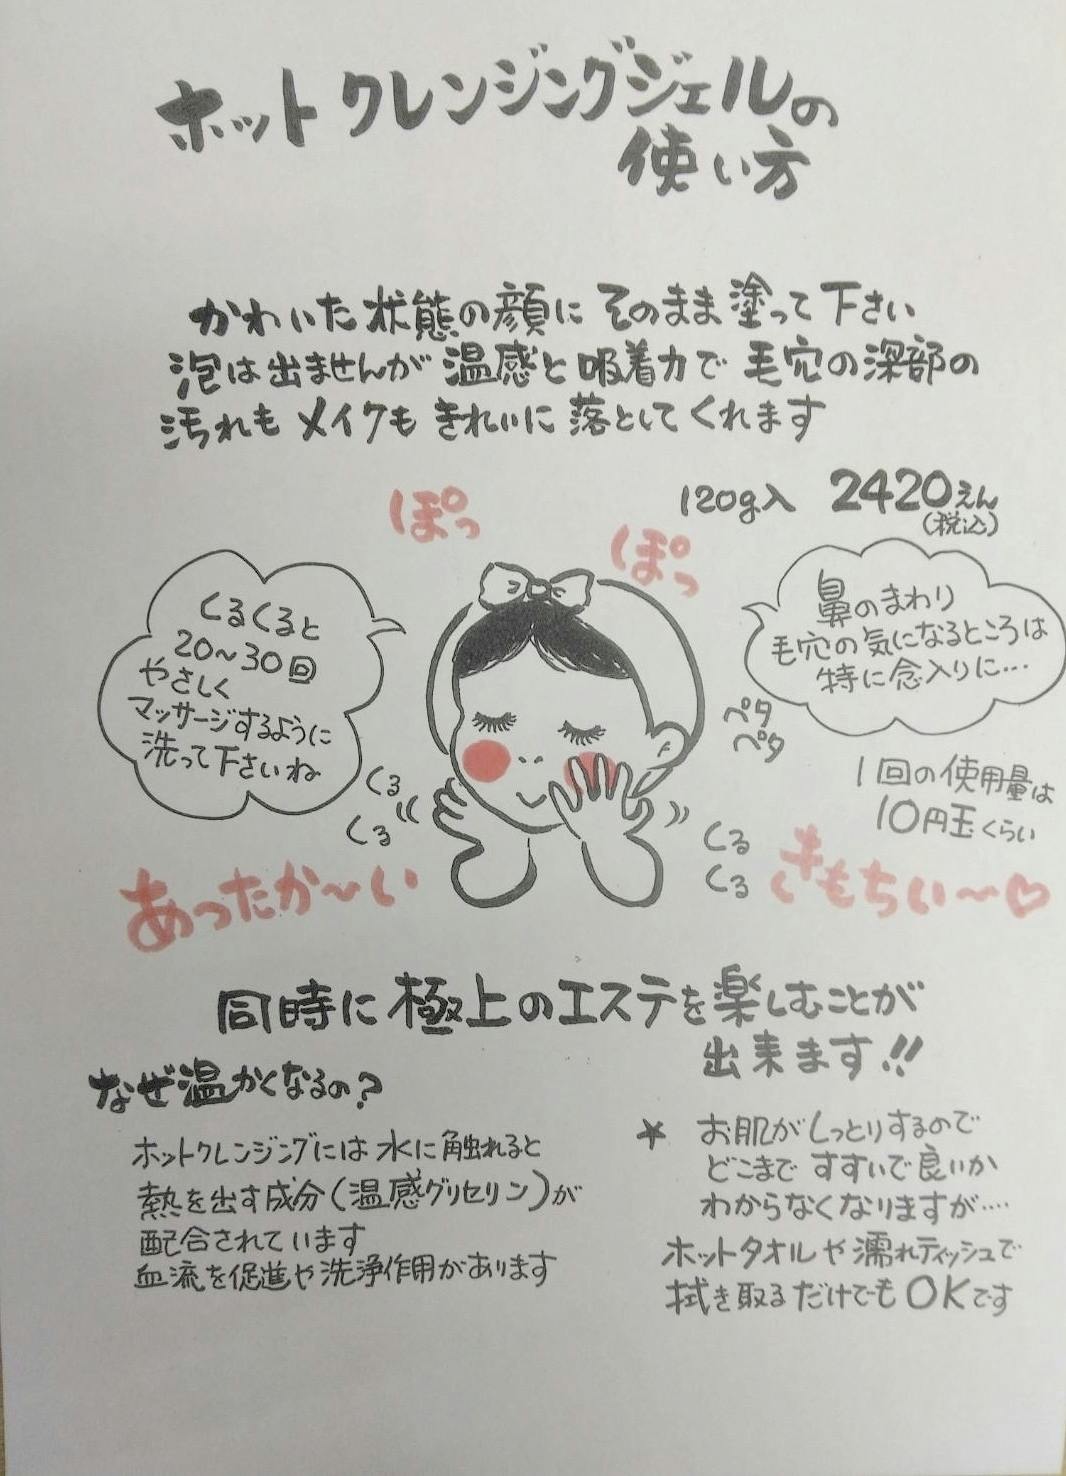 ホットクレンジングジェルの
使い方
かわいた状態の顔にそのまま塗って下さい
泡は出ませんが温感と吸着力で毛穴の深部の
汚れもメイクもきれいに落としてくれます
120g入 2420えん
(税込)
ぽっ
ぽっ
くるくると
20〜30回
やさしく
マッサージするように
洗って下さいね
鼻のまわり
毛穴の気になるところは
特に念入りに…
ペタ
ペタ
くる
くる
1回の使用量は
10円玉くらい
くる
くる
あったか〜い
きもちい〜♡
同時に極上のエステを楽しむことが
出来ます!!
なぜ温かくなるの?
ホットクレンジングには水に触れると
熱を出す成分(温感グリセリン)が
配合されています
血流を促進や洗浄作用があります
★ お肌がしっとりするので
どこまですすいで良いか
わからなくなりますが‥‥
ホットタオルや濡れティッシュで
拭き取るだけでもOKです